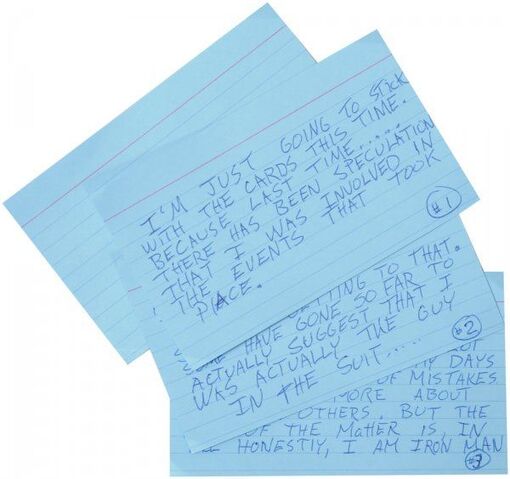 I'M JUST GOING TO STICK
WITH THE CARDS THIS TIME.
BECAUSE LAST TIME.....
THERE HAS BEEN SPECULATION
THAT I WAS INVOLVED IN
THE EVENTS THAT TOOK
PLACE.
#1
GETTING TO THAT.
SOME HAVE GONE SO FAR TO
ACTUALLY SUGGEST THAT I
WAS ACTUALLY THE GUY
IN THE SUIT.....
#2
MY DAYS
OF MISTAKES
MORE ABOUT
OTHERS. BUT THE
OF THE MATTER IS, IN
HONESTLY, I AM IRON MAN
#3